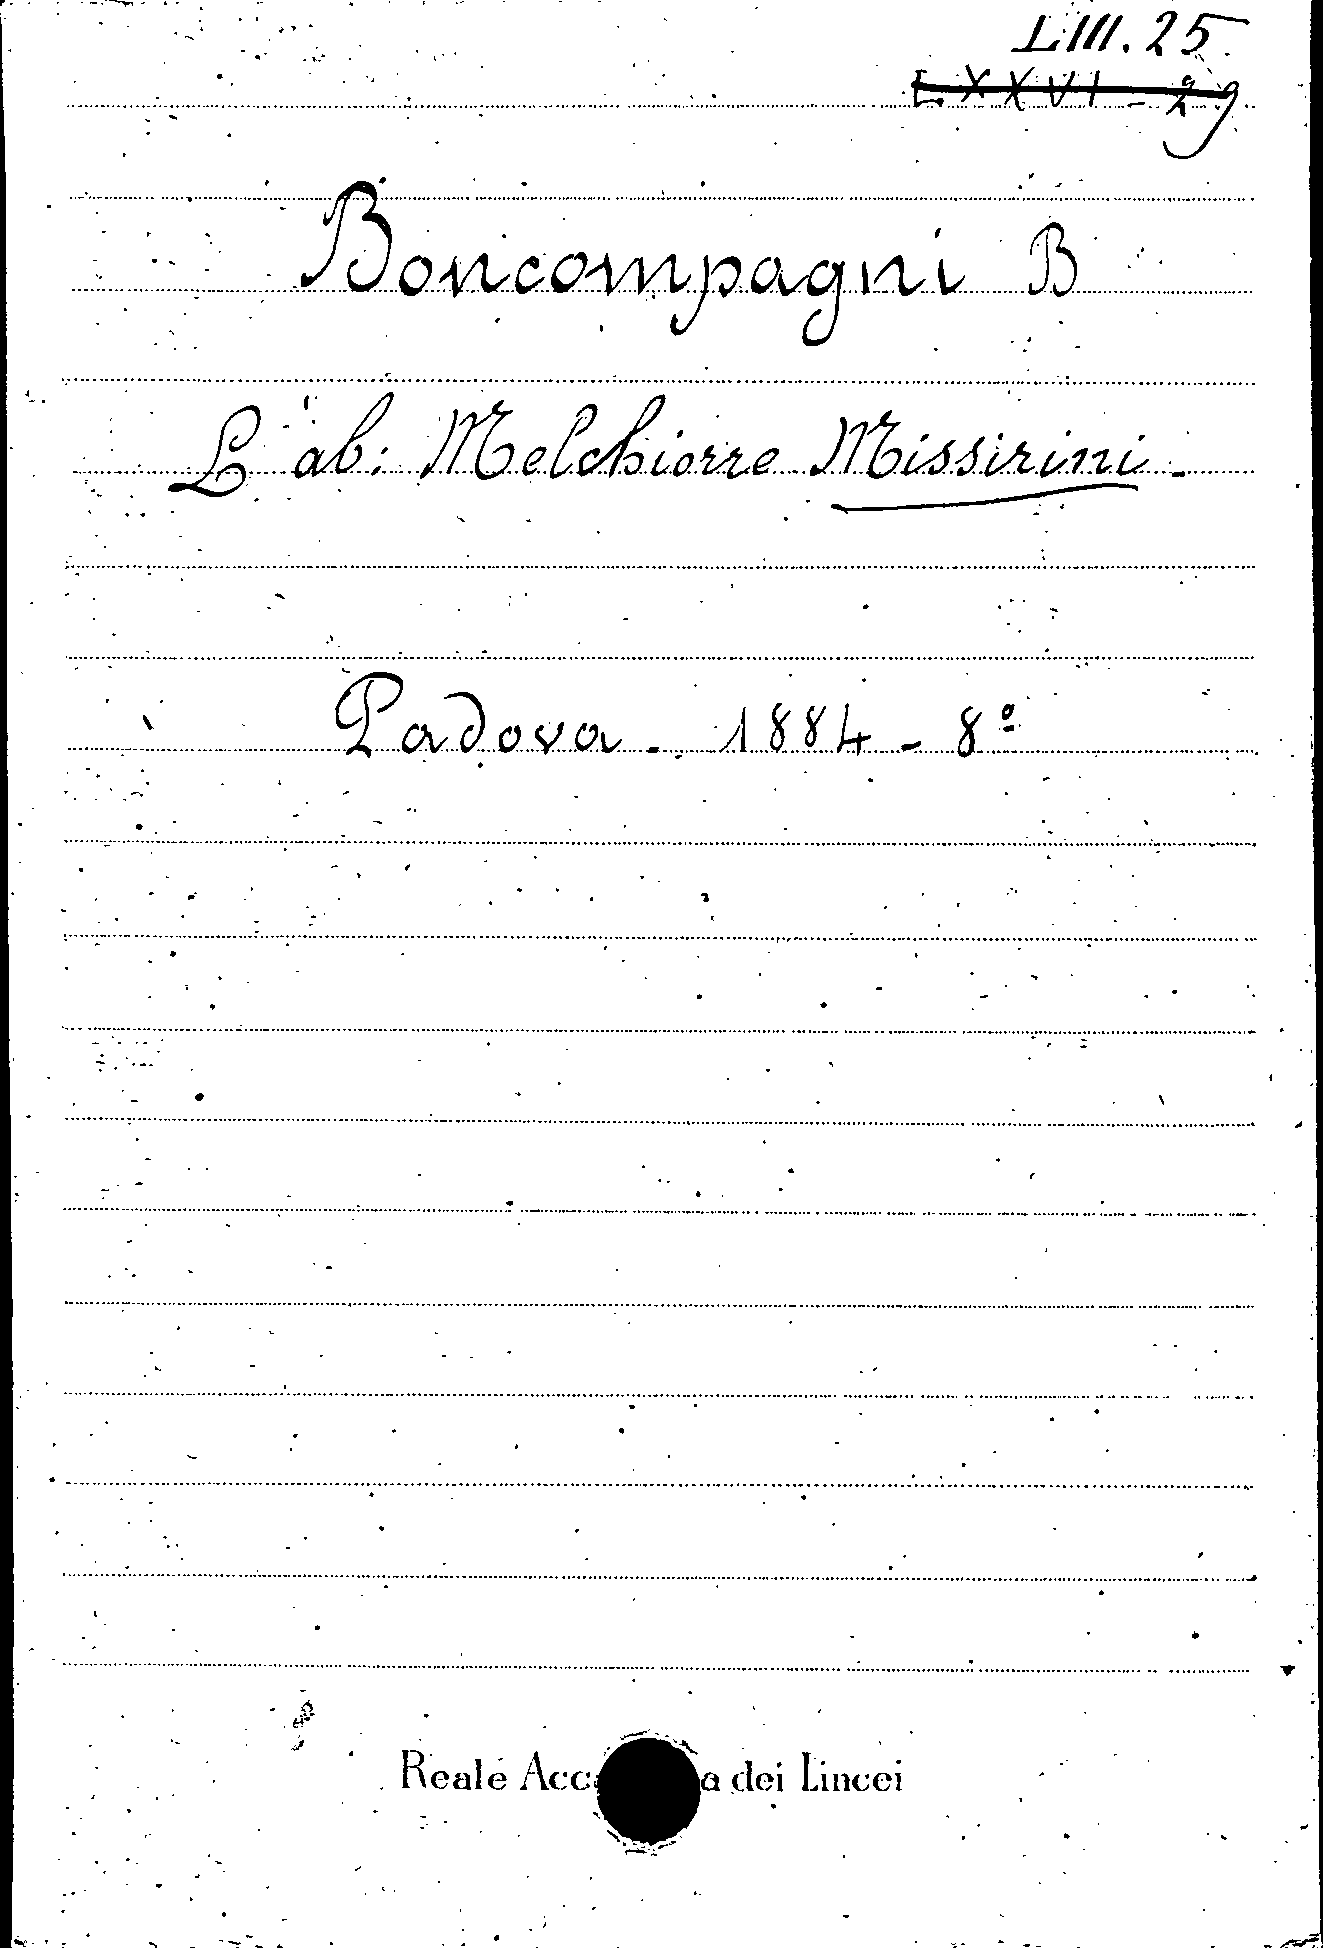 LIII. 25
LXXVI - 29
Boncompagni B
L'ab: Melchiorre Missirini -
Padova - 1884 - 8º
Reale Acc a dei Lincei